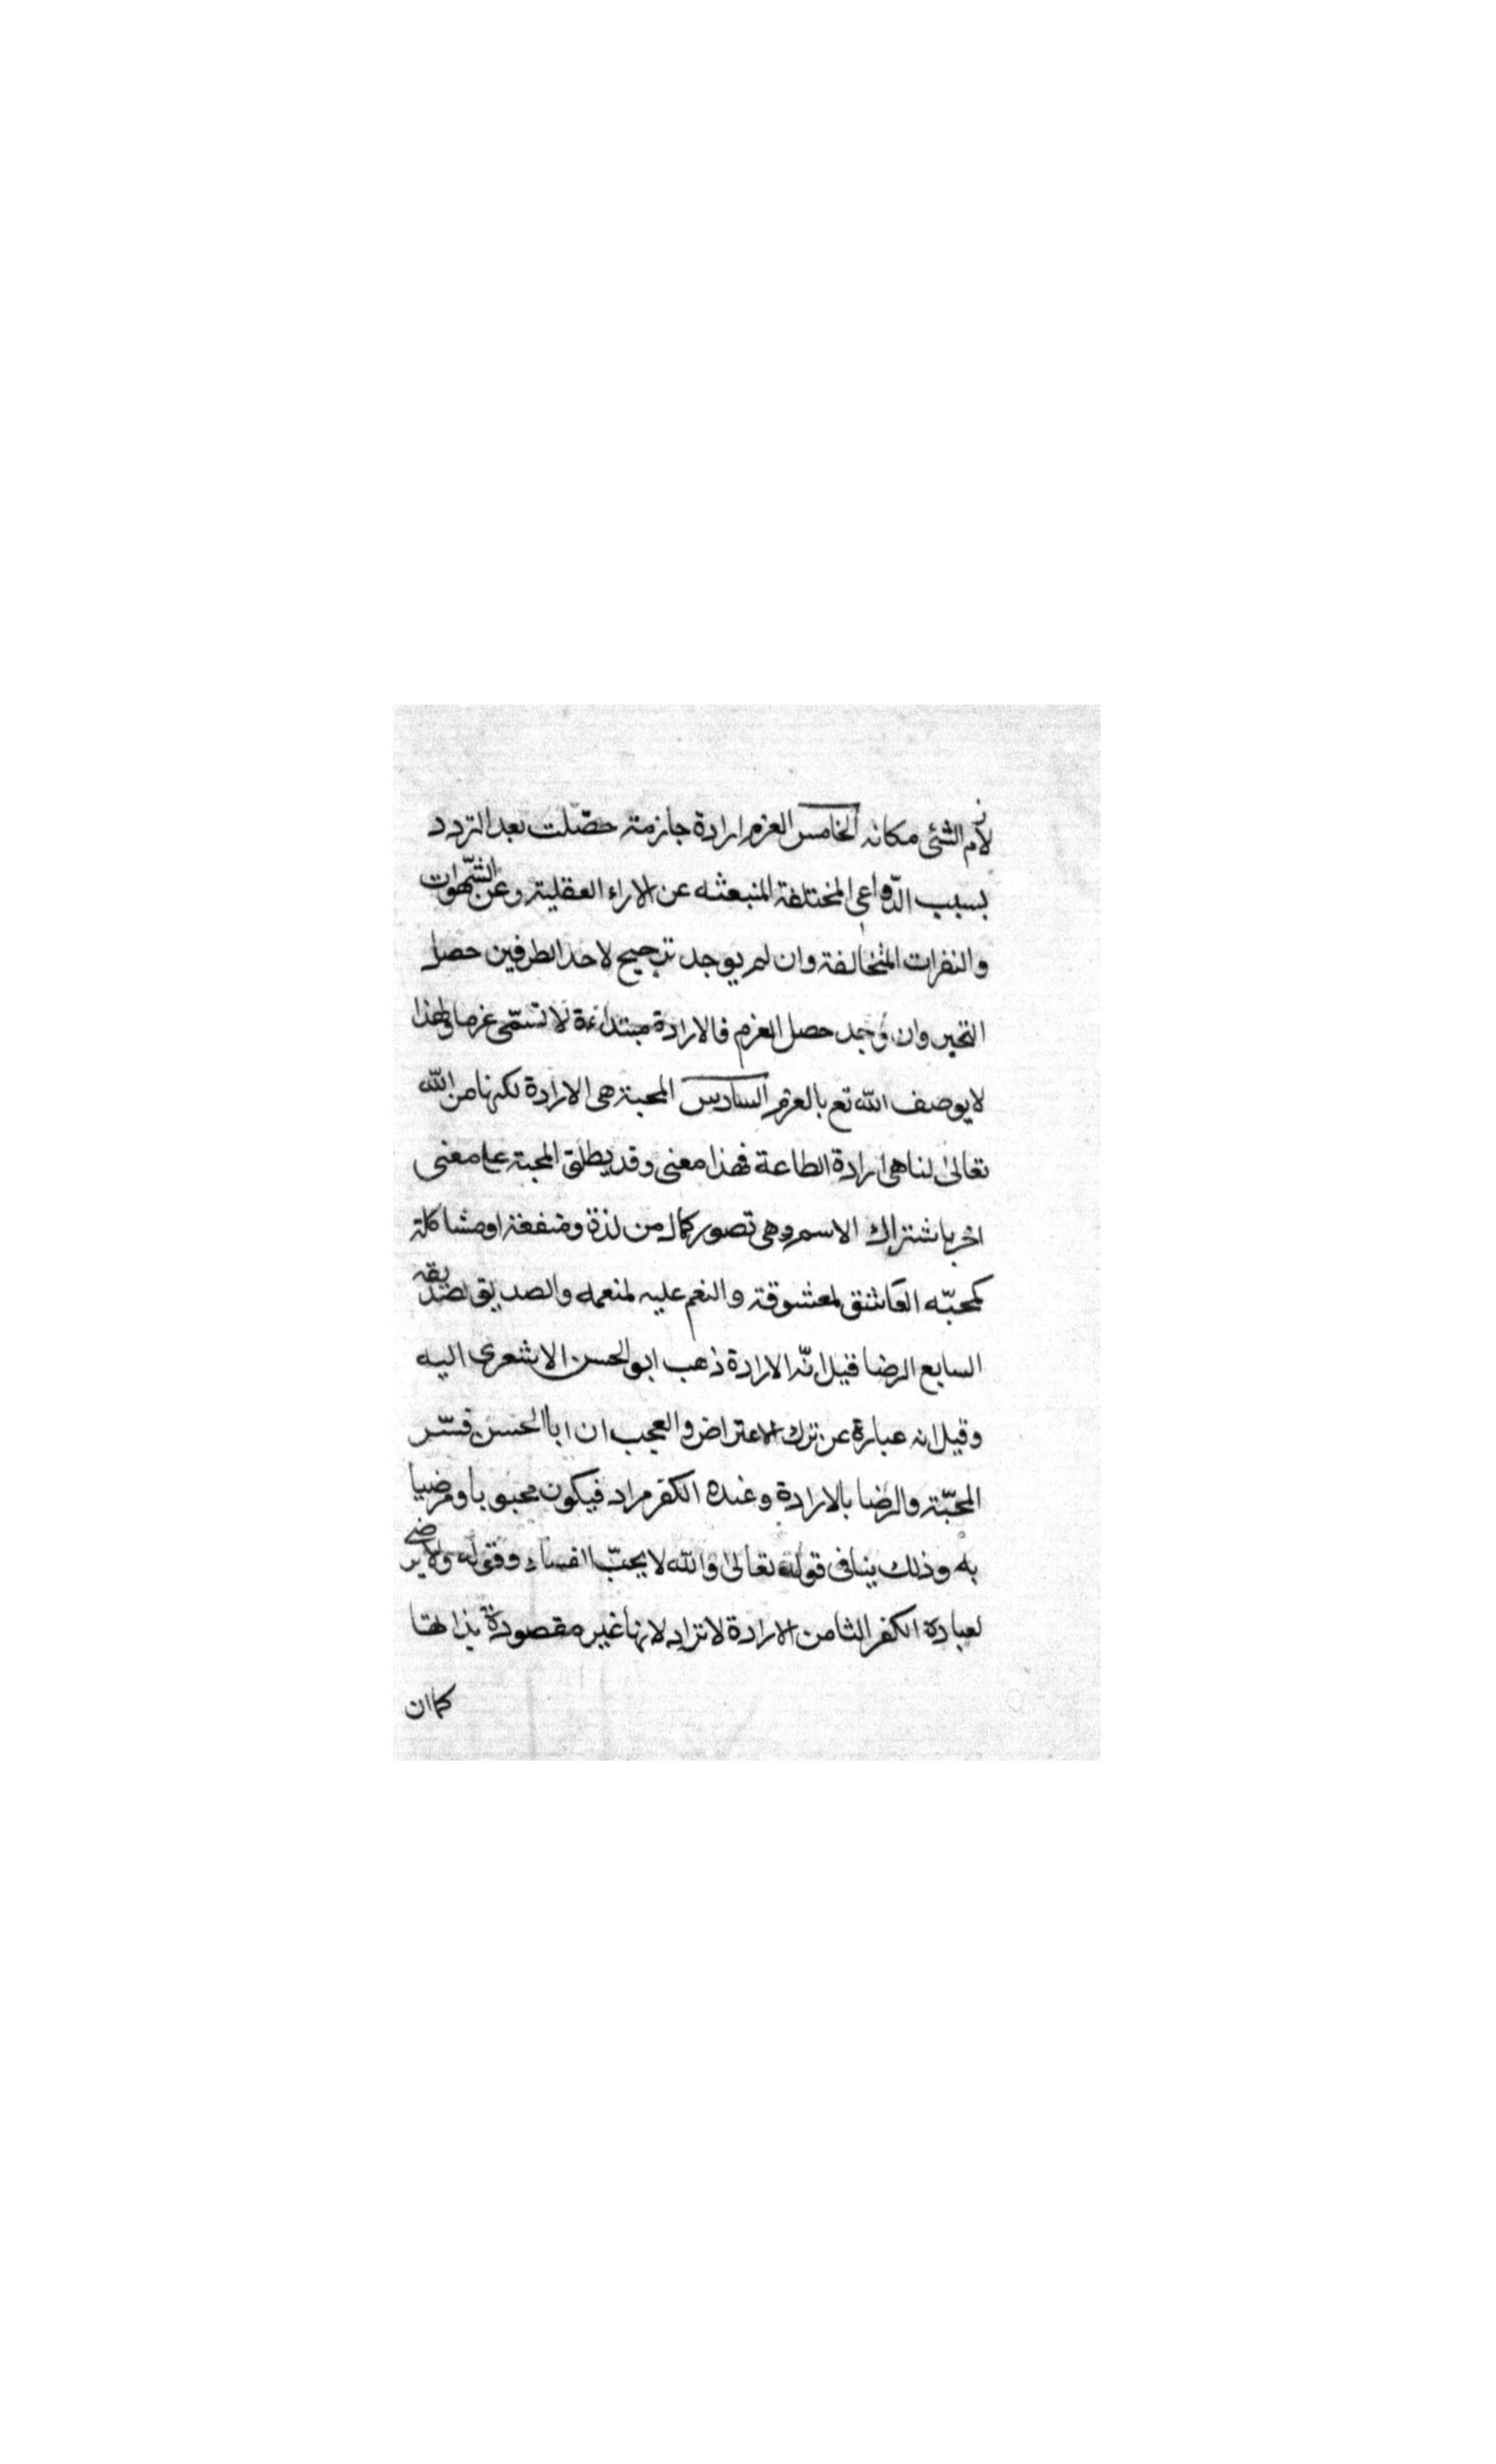 لازم الشئ مكانه الخامس العزم ارادة جازمة حصّلت بعد التردد
بسبب الدّواعى المختلفة المنبعثه عن الاراء العقلية وعن الشّهوات
والنفرات المتخالفة وان لم يوجد ترجيح لاحد الطرفين حصل
التحير وان وجد حصل العزم فالارادة مبتداءة لا تسمّى عزما ولهذا
لا يوصف الله تع بالعزم السادس المحبة هى الارادة لكنها من الله
تعالى لنا هى ارادة الطاعة فهذا معنى وقد يطلق المحبة على معنى
اخر باشتراك الاسم وهى تصور كمال من لذة ومنفعة او مشاكلة
كمحبّه العاشق لمعشوقة والنعم عليه لمنعمه والصديق لصديقه
السابع الرضا قيل انّه الارادة ذهب ابو الحسن الاشعرى اليه
وقيل انه عبارة عن ترك الاعتراض والعجب ان ابا الحسن فسّر
المحبّة والرضا بالارادة وعنده الكفر مراد فيكون محبوبا ومرضيا
به وذلك ينافى قوله تعالى والله لا يحبّ الفساد وقوله ولا يرضى
لعباده الكفر الثامن الارادة لا تراد لانها غير مقصودة بذاتها
كما ان